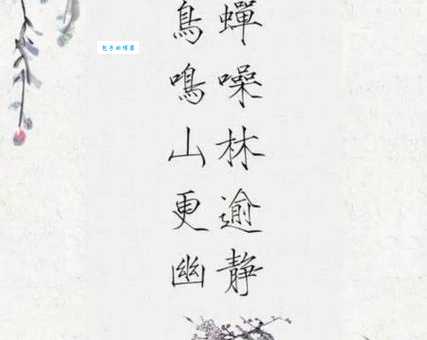 蟬噪林逾静
鳥鳴山更幽